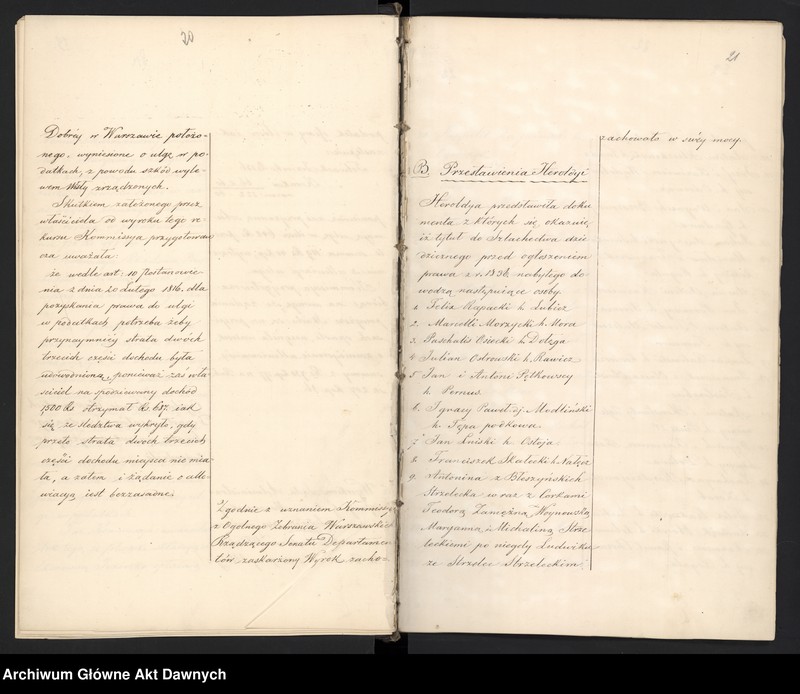 20
Dobréj w Warszawie położo-
nego, wyniesione o ulgę w po-
datkach, z powodu szkód wyle-
wem Wisły zrządzonych.
Skutkiem założonego przez
właściciela od wyroku tego re-
kursu Kommissya przygotowaw
cza uważała:
że wedle art: 10 Postanowie-
nia z dnia 20 Lutego 1816. dla
pozyskania prawa do ulgi
w podatkach potrzeba żeby
przynaymniéy strata dwóch
trzecich części dochodu była
udowodnioną, ponieważ zaś wła
ściciel na spodziewany dochód
1500 Rs otrzymał Rs. 687. iak
się ze śledztwa wykryło, gdy
przeto strata dwóch trzecich
części dochodu mieysca nie mia-
ła, a zatem i żądanie o alle-
wiacyą iest bezzasadne.
Zgodnie z uznaniem Kommissyi
z Ogólnego Zebrania Warszawskich
Rządzącego Senatu Departamen
tów zaskarżony Wyrok zacho-
21
zachowało w swéy mocy.
B. Przedstawienia Heroldyi
Heroldya przedstawiła doku
menta z których się okazuie,
iż tytuł do Szlachectwa dzie
dzicznego przed ogłoszeniem
prawa z r. 1836. nabytego do
wodzą następuiące osoby.
1. Felix Rapacki h. Lubicz
2. Marcelli Morzycki h. Mora
3. Paschalis Osiecki h. Dołęga
4. Julian Ostrowski h. Rawicz
5. Jan i Antoni Pętkowscy
h. Pernus.
6. Ignacy Paweł 2j. Modliński
h. Tępa podkowa.
7. Jan Łniski h. Ostoja
8. Franciszek Skulecki h. Nałęcz
9. Antonina z Błeszyńskich
Strzelecka wraz z córkami
Teodorą Zamężną Woynowską
Maryanną i Michaliną Strze
leckiemi po niegdy Ludwiku
ze Strzelec Strzeleckim
Archiwum Główne Akt Dawnych